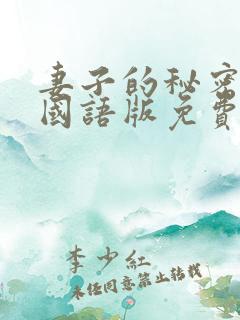 妻子的秘密
國語版免費
李少紅
未经同意禁止转载